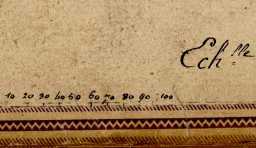 Ech.lle
10 20 30 40 50 60 70 80 90 100